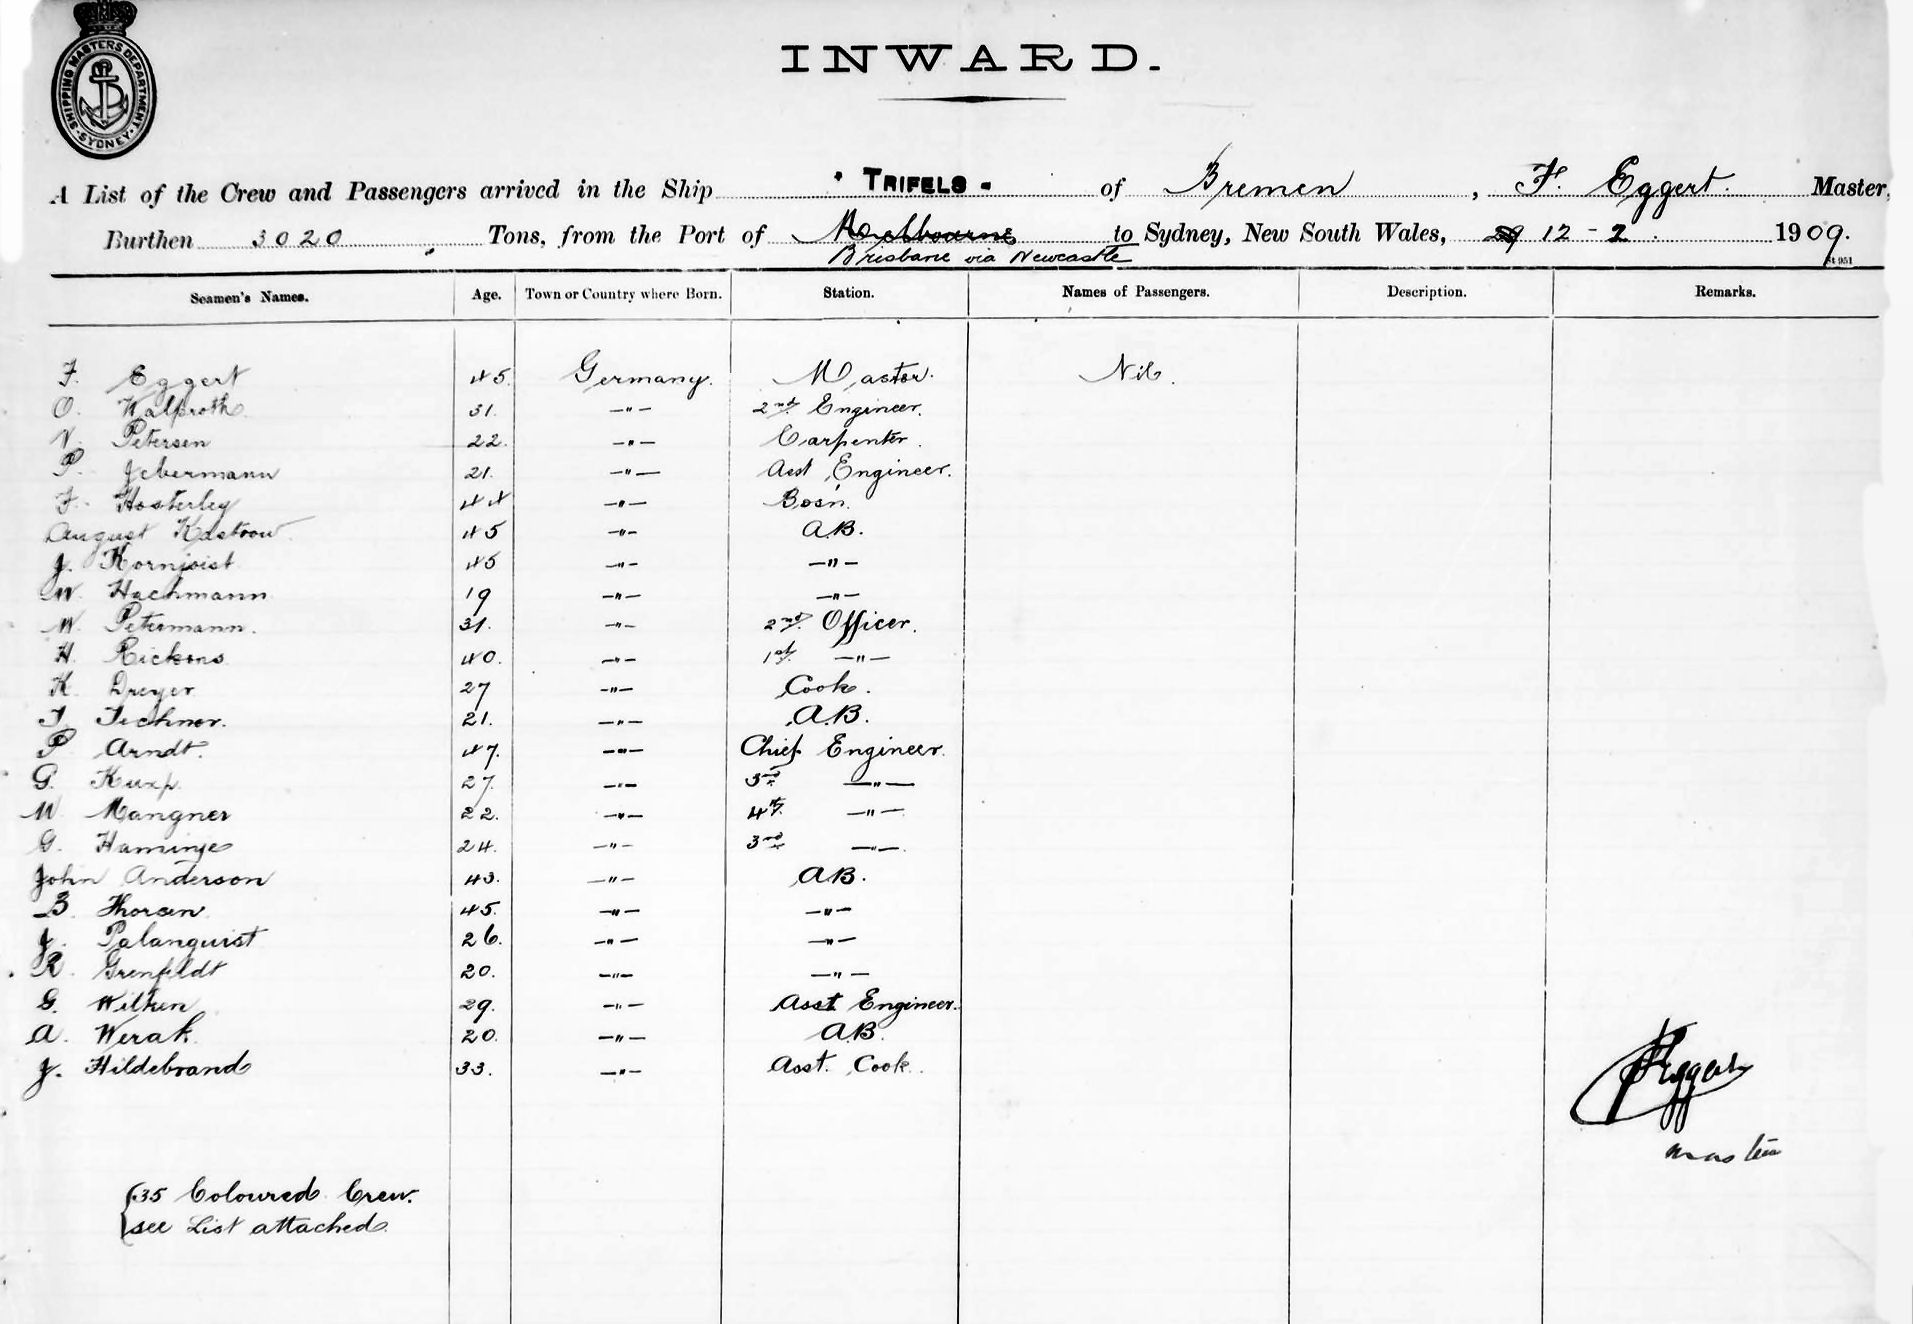 SHIPPING MASTERS DEPARTMENT · SYDNEY ·
INWARD.
A List of the Crew and Passengers arrived in the Ship TRIFELS of Bremen, F. Eggert. Master,
Burthen 3020 Tons, from the Port of Melbourne to Sydney, New South Wales, 12 - 2. 1909.
Brisbane via Newcastle
St 951
Seamen's Names. Age. Town or Country where Born. Station. Names of Passengers. Description. Remarks.
F. Eggert 45. Germany. Master. Nil.
O. Walproth 31. —"— 2nd Engineer.
N. Petersen 22. —"— Carpenter.
P. Jebermann 21. —"— Asst Engineer.
F. Hosterley 44 —"— Bosn.
August Kastrow 45 —"— A.B.
J. Kornjoist 45 —"— —"—
W. Hachmann 19 —"— —"—
W. Petermann. 31. —"— 2nd Officer.
H. Rickens 40. —"— 1st —"—
K. Dreyer 27 —"— Cook.
Techner. 21. —"— A.B.
P Arndt. 47. —"— Chief Engineer.
G. Kurp. 27. —"— 3rd —"—
W. Mangner 22. —"— 4th —"—
G. Haminje 24. —"— 3rd —"—
John Anderson 43. —"— A.B.
B. Thorsen 45. —"— —"—
J. Palanquist 26. —"— —"—
R. Grenfeldt 20. —"— —"—
G. Wilken 29. —"— Asst Engineer.
A. Werak. 20. —"— A.B.
J. Hildebrand 33. —"— Asst. Cook.
F Eggert
Master
{35 Coloured Crew.
see List attached.